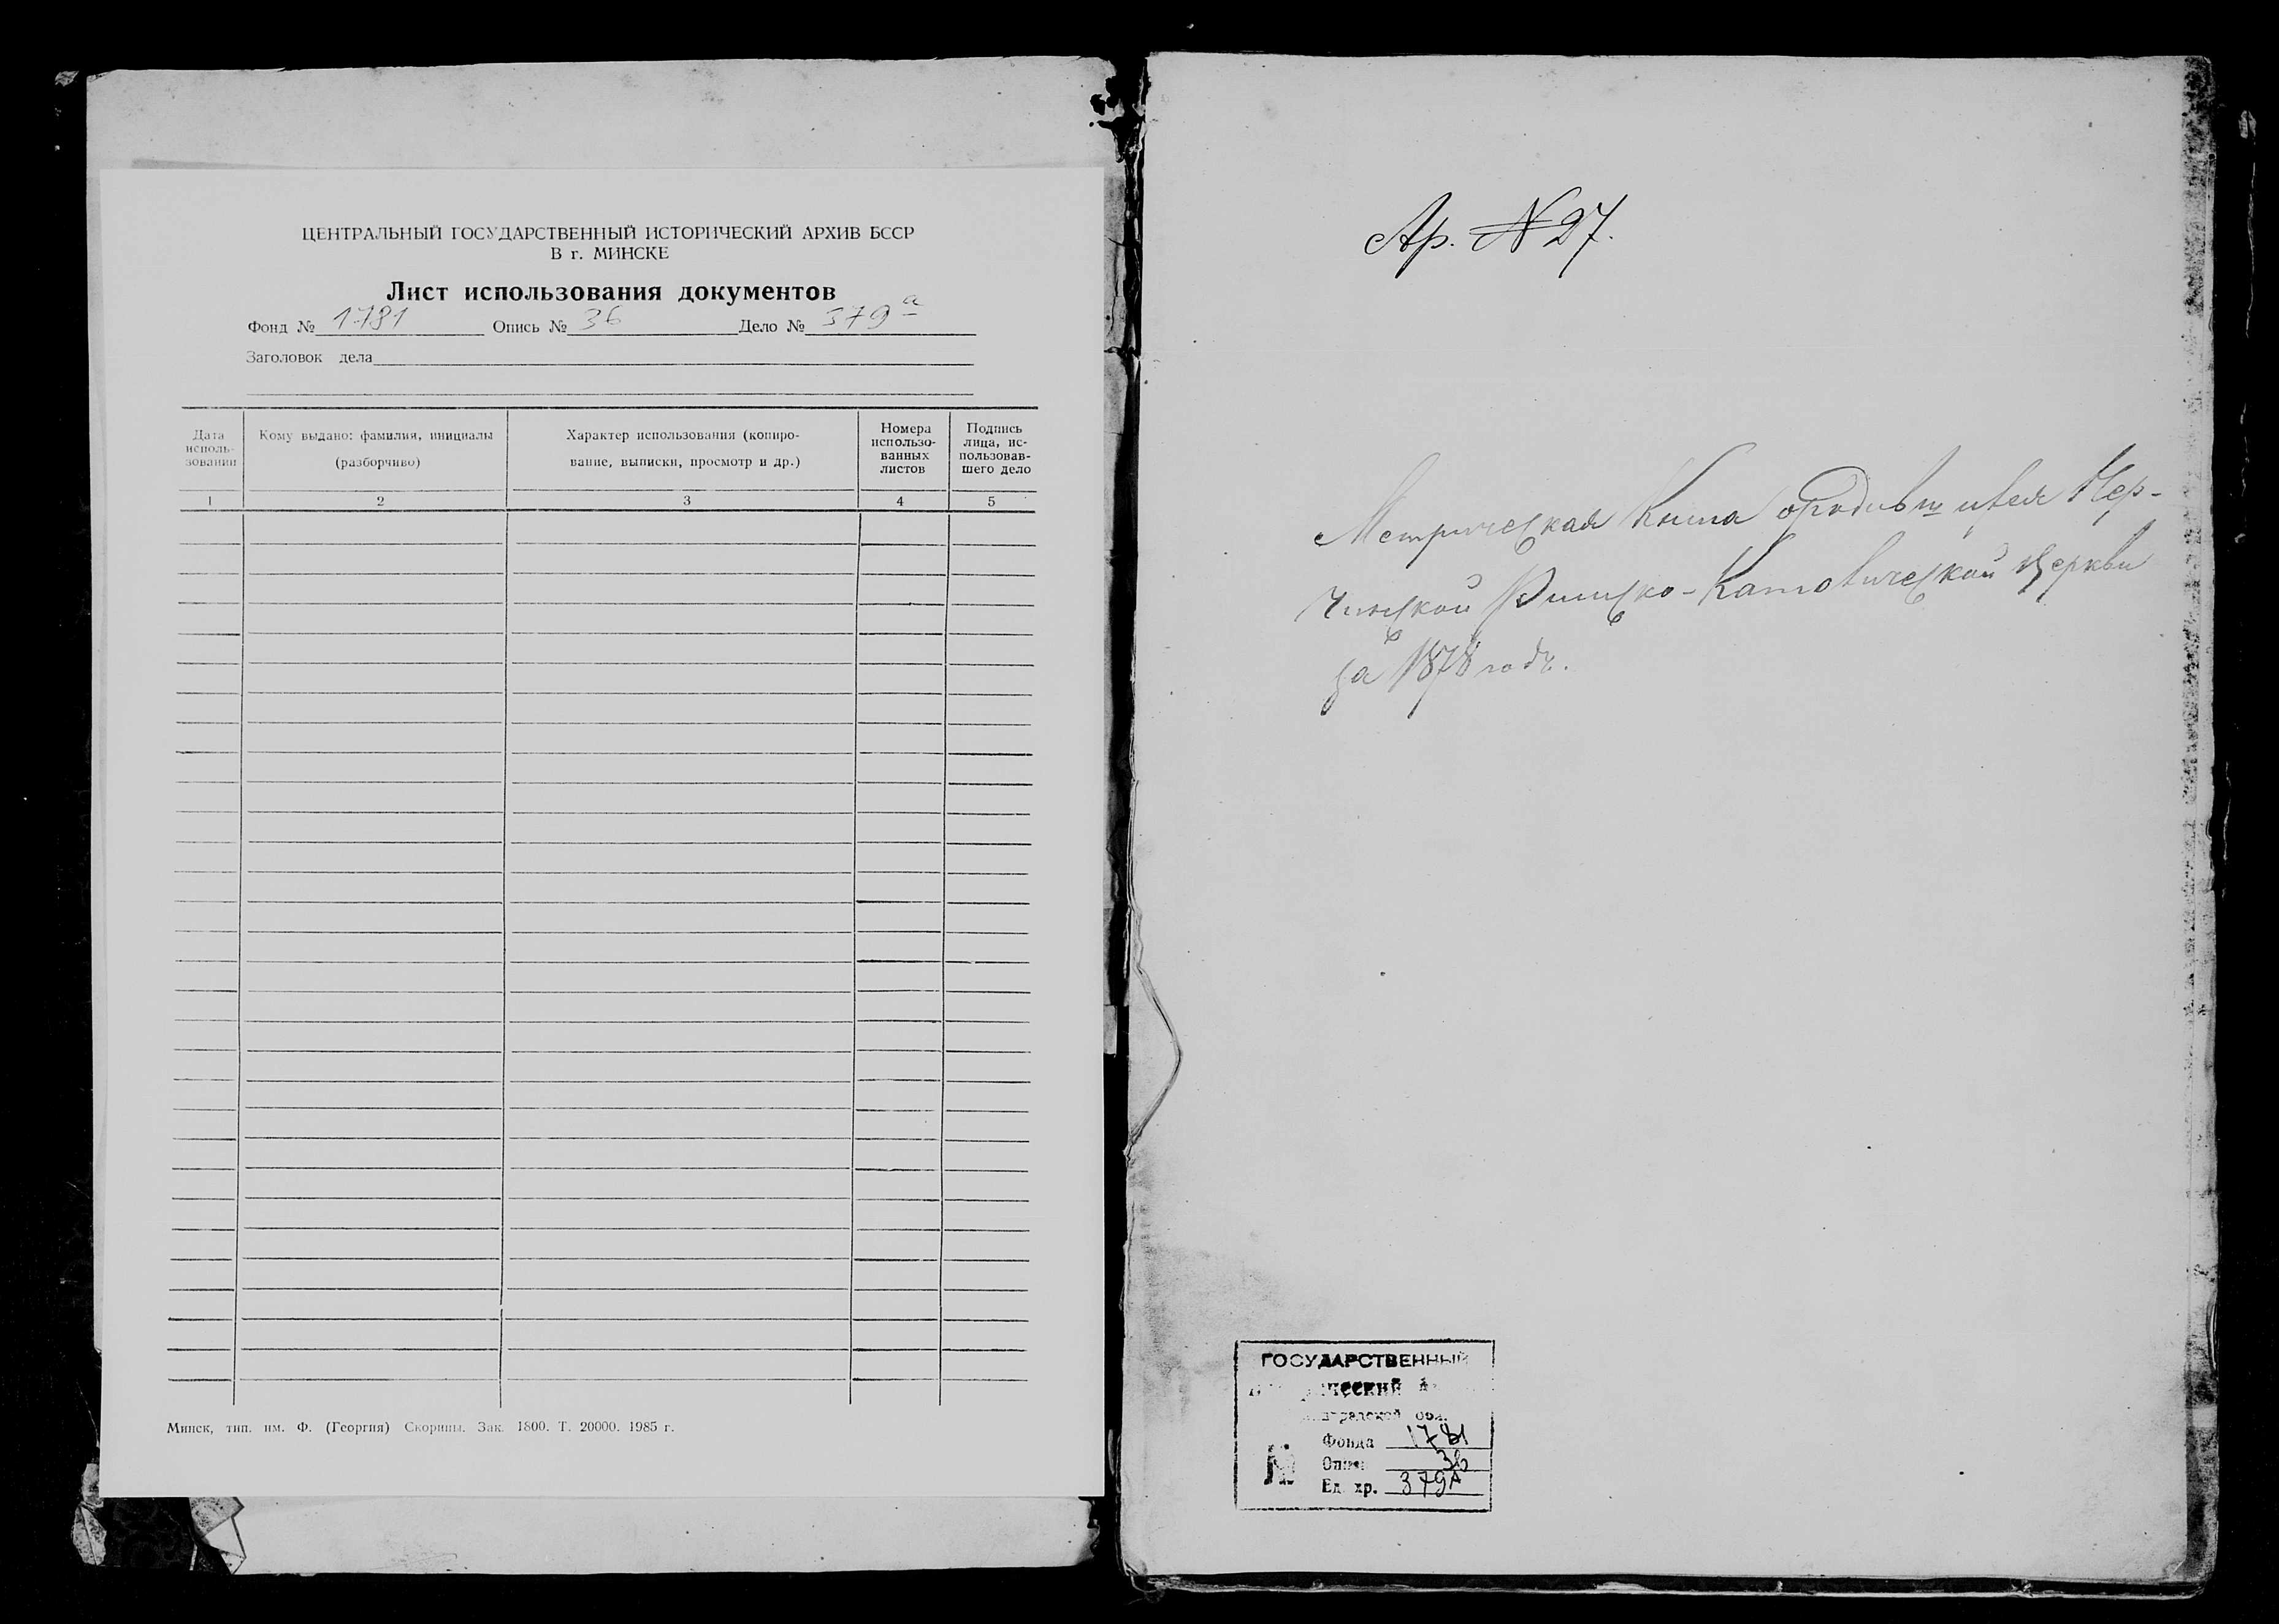 ЦЕНТРАЛЬНЫЙ ГОСУДАРСТВЕННЫЙ ИСТОРИЧЕСКИЙ АРХИВ БССР
В г. МИНСКЕ
Лист использования документов
Фонд № 1781 Опись № 36 Дело № 379а
Заголовок дела
Дата исполь-зования
Кому выдано: фамилия, инициалы (разборчиво)
Характер использования (копиро-вание, выписки, просмотр и др.)
Номера использо-ванных листов
Подпись лица, ис-пользовав-шего дело
1 2 3 4 5
Минск, тип. им. Ф. (Георгия) Скорины. Зак. 1800. Т. 20000. 1985 г.
Ар. № 27.
Метрическая Книга о родившихся Нер-
чинской Римско-Католической Церкви
за 1878 годъ.
ГОСУДАРСТВЕННЫЙ
обл.
Фонда 1781
№ Опись 36
Ед. хр. 379А